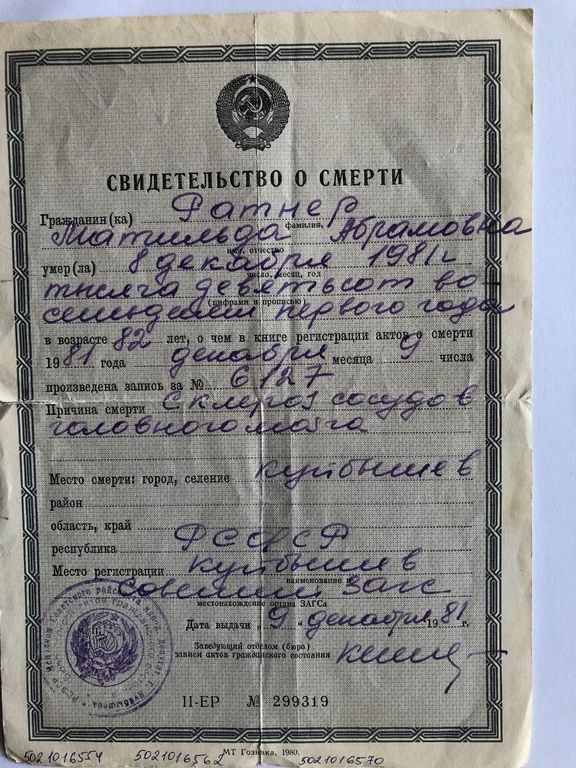 СВИДЕТЕЛЬСТВО О СМЕРТИ
Гражданин(ка) Ратнер
фамилия,
Матильда Абрамовна
имя, отчество
умер(ла) 8 декабря 1981 г
число, месяц, год
тысяча девятьсот во-
(цифрами и прописью)
семьдесят первого года
в возрасте 82 лет, о чем в книге регистрации актов о смерти
1981 года декабря месяца 9 числа
произведена запись за № 6127
Причина смерти Склероз сосудов
головного мозга
Место смерти: город, селение Куйбышев
район
область, край
республика РСФСР
Место регистрации Куйбышев
наименование и
Советский Загс
местонахождение органа ЗАГСа
Дата выдачи „9“ декабря 1981 г.
Заведующий отделом (бюро)
записи актов гражданского состояния
II-ЕР № 299319
МТ Гознака. 1980.
5021016554 5021016562 5021016570